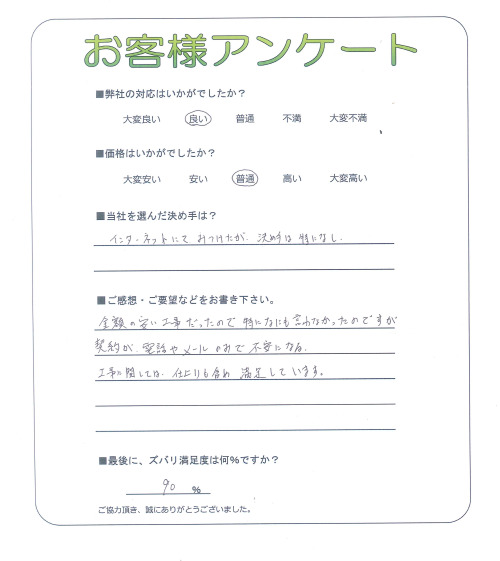 お客様アンケート
■弊社の対応はいかがでしたか?
大変良い 良い 普通 不満 大変不満
■価格はいかがでしたか?
大変安い 安い 普通 高い 大変高い
■当社を選んだ決め手は?
インターネットにて みつけたが、決め手は 特になし.
■ご感想・ご要望などをお書き下さい。
金額の安い工事だったので 特になにも言わなかったのですが
契約が、電話やメールのみで 不安になる。
工事に関しては、仕上りも含め 満足しています。
■最後に、ズバリ満足度は何%ですか?
90 %
ご協力頂き、誠にありがとうございました。